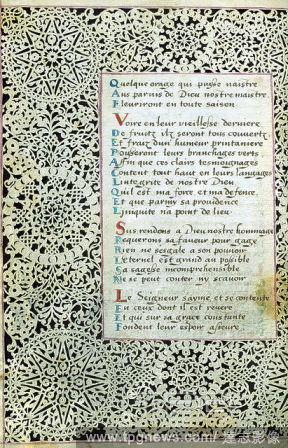 Quelque orage qui puysse naistre
Aus parvis de Dieu nostre maistre
Fleuriront en toute saison
Voire en leur vieillesse derniere
De fruitz ilz seront tous couvertz
Et fraiz d'un humeur printaniere
Pousseront leurs branchages verts
Affin que ces clairs tesmoignages
Content tout haut en leurs langages
L'integrité de nostre Dieu
Qu'il est ma force et ma defence
Et que parmy sa providence
L'iniquite na point de lieu
Sus rendons a Dieu nostre hommage
Requerons sa faveur pour gage
Rien ne s'esgale a son pouvoir
L'eternel est grand au possible
Sa sagesse incomprehensible
Ne se peut conter ny scavoir
Le Seigneur sayme et se contente
En ceux dont il est reveré
Et qui sur sa grace constante
Fondent leur espoir asseuré
www.tpgnews.com/達志影像